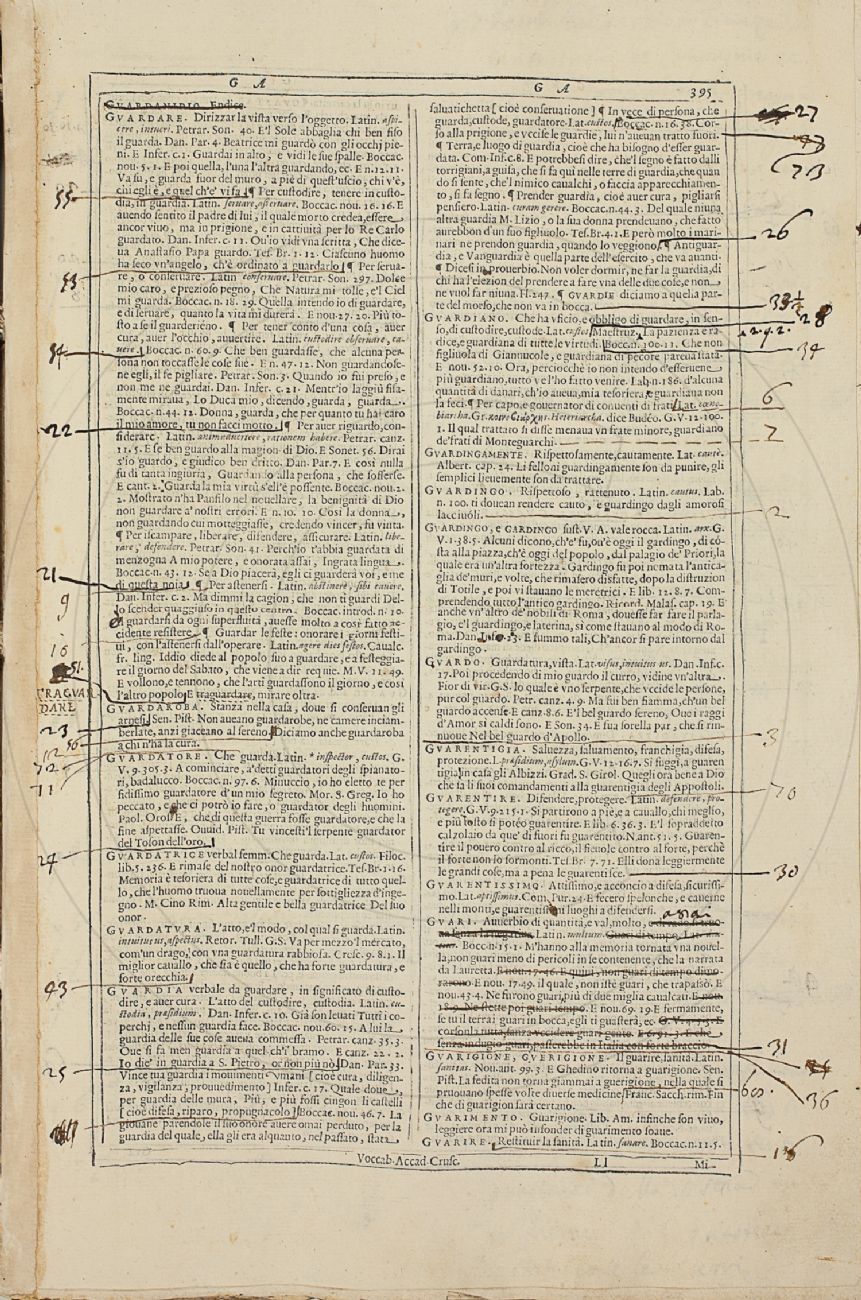 G A
G A
395
GVARDANIDIO. Endice.
GVARDARE. Dirizzar la vista verso l'oggetto. Latin. aspi-
cere, intueri. Petrar. Son. 40. E'l Sole abbaglia chi ben fiso
il guarda. Dan. Par. 4. Beatrice mi guardò con gli occhj pie-
ni. E Infer. c. 1. Guardai in alto, e vidi le sue spalle. Boccac.
nou. 5. 1. E poi quella, l'una l'altra guardando, ec. E n. 12. 11.
Va su, e guarda fuor del muro, a piè di quest'uscio, chi v'è,
chi egli è, e quel ch'e' vi fa ¶ Per custodire, tenere in custo-
dia, in guardia. Latin. seruare, asseruare. Boccac. nou. 16. 16. E
auendo sentito il padre di lui, il quale morto credea, essere
ancor viuo, ma in prigione, e in cattiuità per lo Re Carlo
guardato. Dan. Infer. c. 11. Qu'io vidi vna scritta, Che dice-
ua Anastasio Papa guardo. Tes. Br. 1. 12. Ciascuno huomo
ha seco vn'angelo, ch'è ordinato a guardarlo ¶ Per serua-
re, o conseruare. Latin. conseruare. Petrar. Son. 297. Dolce
mio caro, e prezioso pegno, Che Natura mi tolse, e'l Ciel
mi guarda. Boccac. n. 18. 29. Quella intendo io di guardare,
e di seruare, quanto la vita mi durerà. E nou. 27. 20. Più to-
sto a se il guarderieno. ¶ Per tener conto d'una cosa, auer
cura, auer l'occhio, auuertire. Latin. custodire obseruare, ca-
uere. Boccac. n. 60. 9. Che ben guardasse, che alcuna per-
sona non toccasse le cose sue. E n. 47. 12. Non guardandose-
ne egli, il fe pigliare. Petrar. Son. 3. Quando io fui preso, e
non me ne guardai. Dan. Infer. c. 21. Mentr'io laggiù fisa-
mente miraua, Lo Duca mio, dicendo, guarda, guarda.
Boccac. n. 44. 12. Donna, guarda, che per quanto tu hai caro
il mio amore, tu non facci motto. ¶ Per auer riguardo, con-
siderare. Latin. animaduertere, rationem habere. Petrar. canz.
11. 5. E se ben guardo alla magion di Dio. E Sonet. 56. Dirai
s'io guardo, e giudico ben dritto. Dan. Par. 7. E così nulla
fu di tanta ingiuria, Guardando alla persona, che sofferse.
E cant. 2. Guarda la mia virtù s'ell'è possente. Boccac. nou. 2.
2. Mostrato n'ha Panfilo nel nouellare, la benignità di Dio
non guardare a' nostri errori. E n. 10. 10. Così la donna,
non guardando cui motteggiasse, credendo vincer, fu vinta.
¶ Per iscampare, liberare, difendere, assicurare. Latin. libe-
rare, defendere. Petrar. Son. 41. Perch'io t'abbia guardata di
menzogna A mio potere, e onorata assai, Ingrata lingua.
Boccac. n. 43. 12. Se a Dio piacerà, egli ci guarderà voi, e me
di questa noia. ¶ Per astenersi. Latin. abstinere, sibi cauere.
Dan. Infer. c. 2. Ma dimmi la cagion, che non ti guardi Del-
lo scender quaggiuso in questo centro. Boccac. introd. n. 10.
E guardarsi da ogni superfluità, auesse molto a così fatto ac-
cidente resistere. ¶ Guardar le feste: onorare i giorni festi-
ui, con l'astenersi dall'operare. Latin. agere dies festos. Caualc.
fr. ling. Iddio diede al popolo suo a guardare, e a festeggia-
re il giorno del Sabato, che viene a dir requie. M. V. 11. 49.
E vollono, e tennono, che l'arti guardassono il giorno, e così
l'altro popolo E traguardare, mirare oltra.
GVARDAROBA. Stanza nella casa, doue si conseruan gli
arnesi. Sen. Pist. Non aueano guardarobe, ne camere inciam-
berlate, anzi giaceano al sereno. Diciamo anche guardaroba
a chi n'ha la cura.
GVARDATORE. Che guarda. Latin. * inspector, custos. G.
V. 9. 305. 3. A cominciare, a' detti guardatori degli spianato-
ri, badalucco. Boccac. n. 97. 6. Minuccio, io ho eletto te per
fidissimo guardatore d'un mio segreto. Mor. S. Greg. Io ho
peccato, e che ci potrò io fare, o guardator degli huomini.
Paol. Oros. E, che di questa guerra fosse guardatore, e che la
fine aspettasse. Ouuid. Pist. Tu vincesti'l serpente guardator
del Toson dell'oro.
GVARDATRICE verbal femm. Che guarda. Lat. custos. Filoc.
lib. 5. 236. E rimase del nostro onor guardatrice. Tes. Br. 1. 16.
Memoria è tesoriera di tutte cose, e guardatrice di tutto quel-
lo, che l'huomo truoua nouellamente per sottigliezza d'inge-
gno. M. Cino Rim. Alta gentile e bella guardatrice Del suo
onor.
GVARDATVRA. L'atto, e'l modo, col qual si guarda. Latin.
intuitus us, aspectus. Retor. Tull. G. S. Va per mezzo 'l mercato,
com'un drago, con vna guardatura rabbiosa. Cresc. 9. 8. 1. Il
miglior cauallo, che sia è quello, che ha forte guardatura, e
forte orecchia.
GVARDIA verbale da guardare, in significato di custo-
dire, e auer cura. L'atto del custodire, custodia. Latin. cu-
stodia, præsidium. Dan. Infer. c. 10. Già son leuati Tutti i co-
perchj, e nessun guardia face. Boccac. nou. 60. 15. A lui la
guardia delle sue cose auea commessa. Petrar. canz. 35. 3.
Oue si fa men guardia a quel ch'i' bramo. E canz. 22. 2.
Io die' in guardia a S. Pietro, or non più nò Dan. Par. 33.
Vince tua guardia i mouimenti vmani [cioè cura, diligen-
za, vigilanza, prouuedimento] Infer. c. 17. Quale doue,
per guardia delle mura, Più, e più fossi cingon li castelli
[cioè difesa, riparo, propugnacolo] Boccac. nou. 46. 7. La
giouane parendole il suo onore auere omai perduto, per la
guardia del quale, ella gli era alquanto, nel passato, stata
Voccab. Accad. Crusc.
saluatichetta [cioè conseruatione] ¶ In vece di persona, che
guarda, custode, guardatore. Lat. custos Boccac. n. 16. 38. Cor-
so alla prigione, e vccise le guardie, lui n'aueuan tratto fuori.
¶ Terra, e luogo di guardia, cioè che ha bisogno d'esser guar-
data. Com. Inf. c. 8. E potrebbesi dire, che'l segno è fatto dalli
torrigiani, a guisa, che si fa qui nelle terre di guardia, che quan
do si sente, che'l nimico caualchi, o faccia apparecchiamen-
to, si fa segno. ¶ Prender guardia, cioè auer cura, pigliarsi
pensiero. Latin. curam gerere. Boccac. n. 44. 3. Del quale niuna
altra guardia M. Lizio, o la sua donna prendeuano, che fatto
aurebbon d'un suo figliuolo. Tes. Br. 4. 1. E però molto i mari-
nari ne prendon guardia, quando lo veggiono. ¶ Antiguar-
dia, e Vanguardia è quella parte dell'esercito, che va auanti.
¶ Dicesi in prouerbio. Non voler dormir, ne far la guardia, di
chi ha l'elezion del prendere a fare vna delle due cose, e non
ne vuol far niuna. Fl. 247. ¶ GVARDIE diciamo a quella par-
te del morso, che non va in bocca.
GVARDIANO. Che ha vficio, e obbligo di guardare, in sen-
so, di custodire, custode. Lat. custos Maestruz. La pazienza e ra-
dice, e guardiana di tutte le virtudi. Bocc. n. 100. 11. Che non
figliuola di Giannucole, e guardiana di pecore pareua stata.
E nou. 52. 10. Ora, perciocchè io non intendo d'esseruene
più guardiano, tutto ve l'ho fatto venire. Lab. n. 186. d'alcuna
quantità di danari, ch'io aueua, mia tesoriera, e guardiana non
la feci. ¶ Per capo, e gouernator di conuenti di frati Lat. ceno-
biarcha. Gr. κοινοβιάρχης. Heteriarcha. dice Budéo. G. V. 12. 100.
1. Il qual trattato si disse menaua vn frate minore, guardiano
de' frati di Monteguarchi.
GVARDINGAMENTE. Rispettosamente, cautamente. Lat. cautè.
Albert. cap. 24. Li felloni guardingamente son da punire, gli
semplici lieuemente son da trattare.
GVARDINGO. Rispettoso, rattenuto. Latin. cautus. Lab.
n. 100. ti doucan rendere cauto, e guardingo dagli amorosi
lacciuòli.
GVARDINGO, e GARDINGO sust. V. A. vale rocca. Latin. arx. G.
V. 1. 38. 5. Alcuni dicono, ch'e' fu, ou'è oggi il gardingo, di co-
sta alla piazza, ch'è oggi del popolo, dal palagio de' Priori, la
quale era un'altra fortezza. Gardingo fu poi nomata l'antica-
glia de' muri, e volte, che rimasero disfatte, dopo la distruzion
di Totile, e poi vi stauano le meretrici. E lib. 12. 8. 7. Com-
prendendo tutto l'antico gardingo. Ricord. Malas. cap. 19. E
anche vn'altro de' nobili di Roma, douesse far fare il parla-
gio, e'l guardingo, e laterina, sì come stauano al modo di Ro-
ma. Dan. Infe. 23. E fummo tali, Ch'ancor si pare intorno dal
gardingo.
GVARDO. Guardatura, vista. Lat. visus, intuitus us. Dan. Inf. c.
17. Poi procedendo di mio guardo il curro, vidine vn'altra.
Fior di vir. G. S. Io quale è vno serpente, che vccide le persone,
pur col guardo. Petr. canz. 4. 9. Ma fui ben fiamma, ch'un bel
guardo accense. E canz. 8. 6. E'l bel guardo sereno, Oue i raggi
d'Amor sì caldi sono. E Son. 34. E sua sorella par, che si rin-
nuoue Nel bel guardo d'Apollo.
GVARENTIGIA. Saluezza, saluamento, franchigia, difesa,
protezione. L. præsidium, asylum. G. V. 12. 16. 7. Si fuggì, a guaren
tigia, in casa gli Albizzi. Grad. S. Girol. Quegli ora bene a Dio
che fa li suoi comandamenti alla guarentigia degli Appostoli.
GVARENTIRE. Difendere, protegere. Latin. defendere, pro-
tegere. G. V. 9. 215. 1. Si partirono a piè, e a cauallo, chi meglio,
e più tosto si potéo guarentire. E lib. 6. 36. 3. E'l sopraddetto
calzolaio da que' di fuori fu guarentito. N. ant. 51. 5. Guaren-
tire il pouero contro al ricco, il fieuole contro al forte, perchè
il forte non lo sormonti. Tes. Br. 7. 71. Elli dona leggiermente
le grandi cose, ma a pena le guarentisce.
GVARENTISSIMO. Attissimo, e acconcio a difesa, sicurissi-
mo. Lat. aptissimus. Com. Pur. 24. E fecero spelonche, e cauerne
nelli monti, e guarentissimi luoghi a difendersi.
assai
GVARI. Auuerbio di quantità, e val, molto,
Bocc. n. 15. 1. M'hanno alla memoria tornata vna nouel-
la, non guari meno di pericoli in se contenente, che la narrata
da Lauretta. E nou. 17. 46. E quiui, non guari di tempo dimo-
rarono E nou. 17. 49. il quale, non istè guari, che trapassò. E
nou. 43. 4. Ne furono guari, più di due miglia caualcati. E nou.
18. 9. Ne stette poi guari tempo. E nou. 69. 19. E fermamente,
se tu il terrai guari in bocca, egli ti guasterà, ec.
corson la tutta, sanza vccidere guari gente.
senza indugio guari, passerebbe in Italia con forte braccio.
GVARIGIONE, GVERIGIONE. Il guarire, sanità. Latin.
sanitas. Nou. ant. 99. 3. E Ghedino ritorna a guarigione. Sen.
Pist. La fedita non torna giammai a guerigione, nella quale si
pruouano spesse volte diuerse medicine, Franc. Sacch. rim. Fin
che di guarigion sarà certano.
GVARIMENTO. Guarigione. Lib. Am. infinche son viuo,
leggiere ora mi può infonder di guarimento soaue.
GVARIRE. Restituir la sanità. Latin. sanare. Boccac. n. 11. 5.
Ll
Mi-
55
53
54
22
21
9
10
51.
TRAGUAR
DARE
23
56
12
72
71
24
43
25
27
23
26
33½
28
34
6
7
2
3
70
30
31
36
60